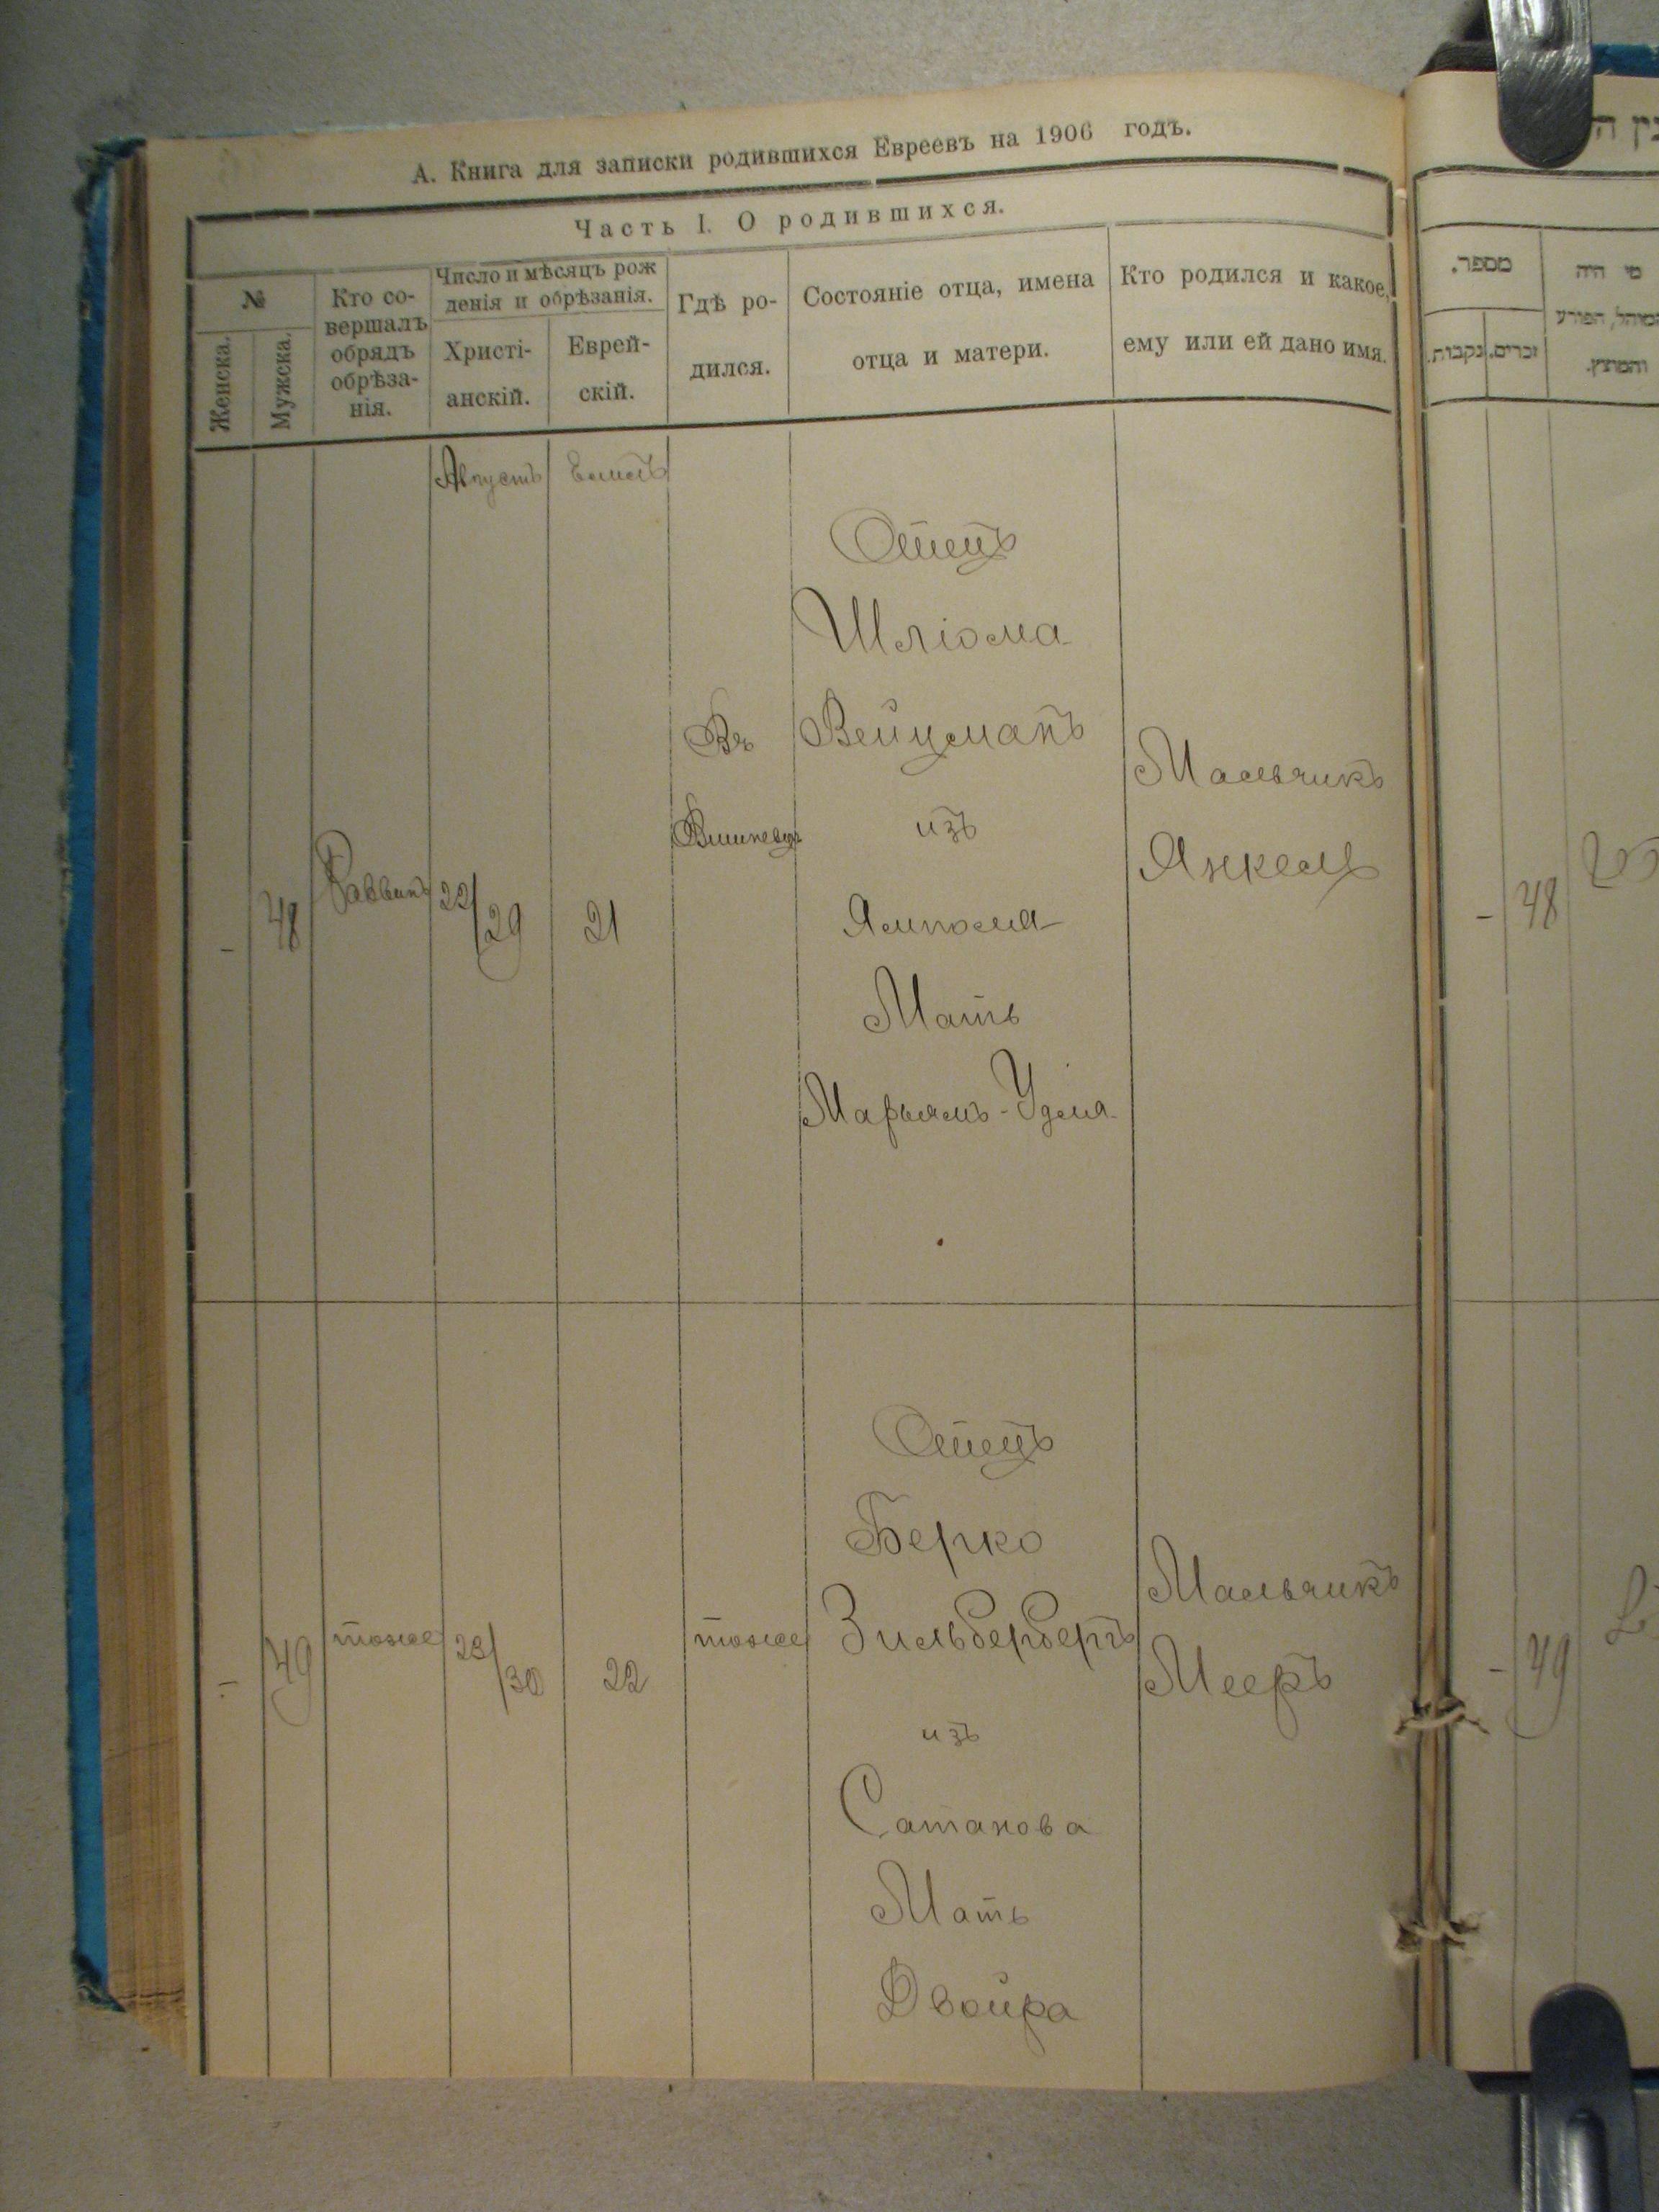 А. Книга для записки родившихся Евреевъ на 1906 годъ.
Часть I. О родившихся.
№
Женска.
Мужска.
Кто со-
вершалъ
обрядъ
обрѣза-
нія.
Число и мѣсяцъ рож
денія и обрѣзанія.
Христі-
анскій.
Еврей-
скій.
Гдѣ ро-
дился.
Состояніе отца, имена
отца и матери.
Кто родился и какое,
ему или ей дано имя.
Августъ
Елюлъ
-
48
Раввинъ
22/29
21
Въ
Вишневцѣ
Отецъ
Шліома
Вейцманъ
изъ
Ямполя
Мать
Марьямъ-Удля
Мальчикъ
Янкель
-
49
тоже
23/30
22
тоже
Отецъ
Берко
Зильбербергъ
изъ
Сатанова
Мать
Двойра
Мальчикъ
Мееръ
מספר.
זכרים.
נקבות.
מי היה
המוהל, הפורע
והמוצץ.
- 48
- 49